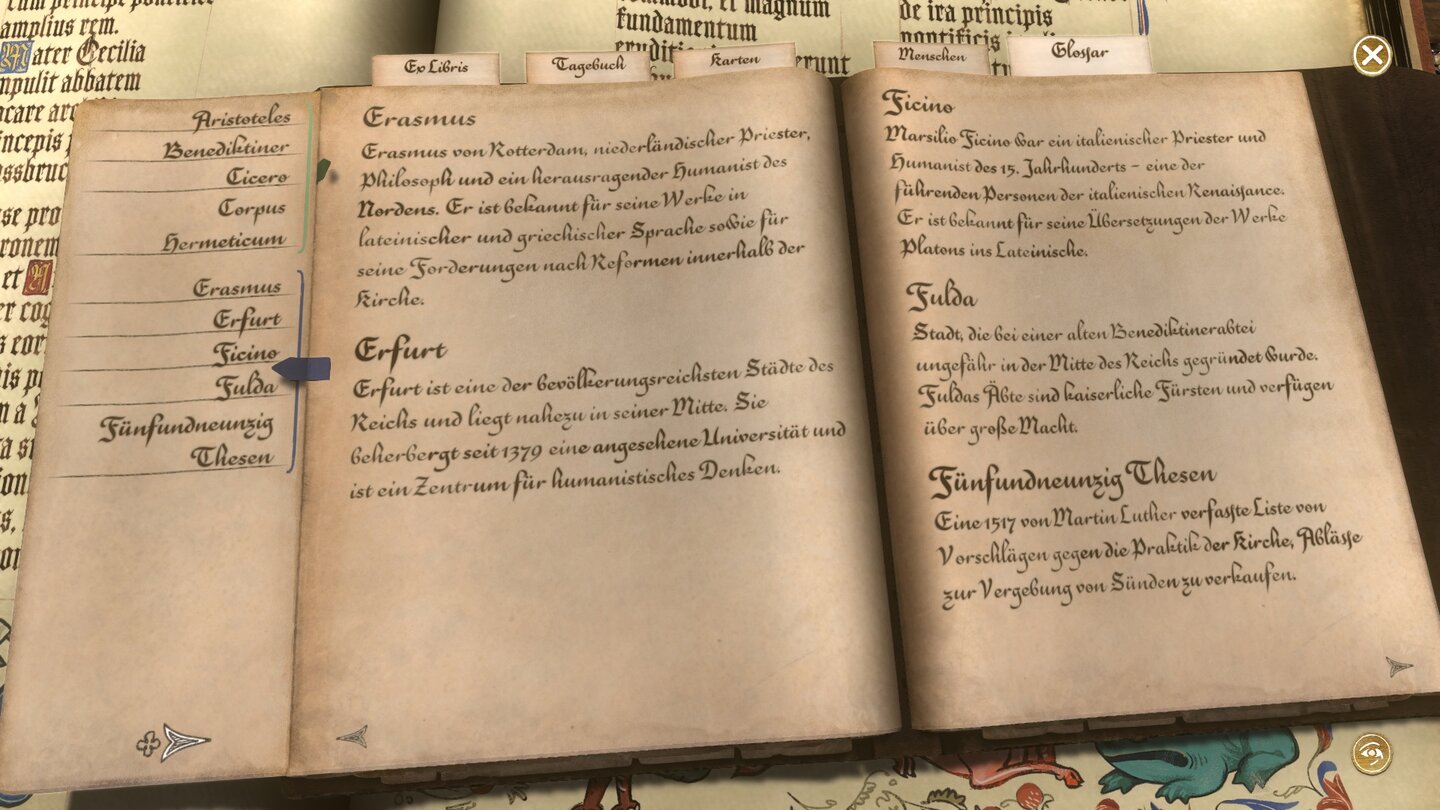 amplius rem.
ater Cecilia
npulit abbatem
fundamentum
de ira principis
Ex Libris
Tagebuch
Karten
Menschen
Glossar
Aristoteles
Benediktiner
Cicero
Corpus
Hermeticum
Erasmus
Erfurt
Ficino
Fulda
Fünfundneunzig
Thesen
Erasmus
Erasmus von Rotterdam, niederländischer Priester,
Philosoph und ein herausragender Humanist des
Nordens. Er ist bekannt für seine Werke in
lateinischer und griechischer Sprache sowie für
seine Forderungen nach Reformen innerhalb der
Kirche.
Erfurt
Erfurt ist eine der bevölkerungsreichsten Städte des
Reichs und liegt nahezu in seiner Mitte. Sie
beherbergt seit 1379 eine angesehene Universität und
ist ein Zentrum für humanistisches Denken.
Ficino
Marsilio Ficino war ein italienischer Priester und
Humanist des 15. Jahrhunderts – eine der
führenden Personen der italienischen Renaissance.
Er ist bekannt für seine Übersetzungen der Werke
Platons ins Lateinische.
Fulda
Stadt, die bei einer alten Benediktinerabtei
ungefähr in der Mitte des Reichs gegründet wurde.
Fuldas Äbte sind kaiserliche Fürsten und verfügen
über große Macht.
Fünfundneunzig Thesen
Eine 1517 von Martin Luther verfasste Liste von
Vorschlägen gegen die Praktik der Kirche, Ablässe
zur Vergebung von Sünden zu verkaufen.